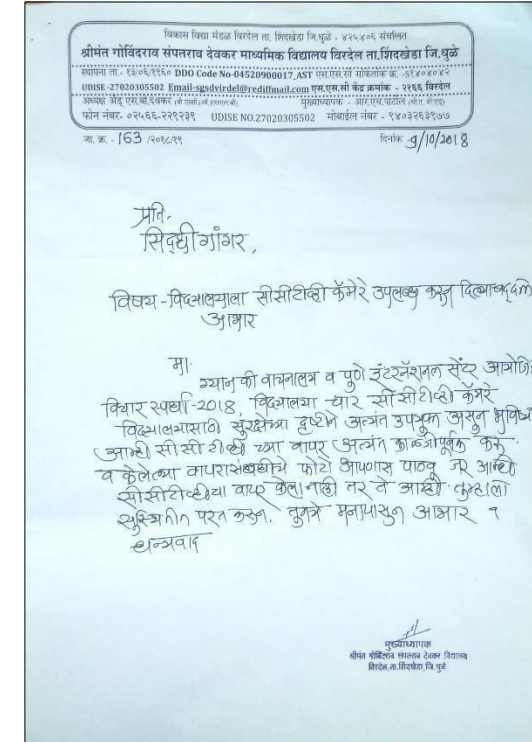 विकास विद्या मंडळ विरदेल ता. शिंदखेडा जि.धुळे - ४२५४०६ संचलित
श्रीमंत गोविंदराव संपतराव देवकर माध्यमिक विद्यालय विरदेल ता.शिंदखेडा जि.धुळे
स्थापना ता.- १३/०६/१९६० DDO Code No-04520900017_AST एस.एस.सी सांकेतांक क्र. -५१४०४०४२
UDISE -27020305502 Email-sgsdvirdel@rediffmail.com एस.एस.सी केंद्र क्रमांक - २१६६ विरदेल
अध्यक्ष अॅड.एस.बी.देवकर मुख्याध्यापक - आर.एच.पाटील
फोन नंबर- ०२५६६-२२९२३९ UDISE NO.27020305502 मोबाईल नंबर - ९४०३२६३९७७
जा. क्र. - 163 /२०१८/१९ दिनांक 9/10/2018
प्रति,
सिद्धी गांगर,
विषय - विद्यालयाला सीसीटीव्ही कॅमेरे उपलब्ध करुन दिल्याबद्दल
आभार
मा.
ग्यान की वाचनालय व पुणे इंटरनॅशनल सेंटर आयोजि
विचार स्पर्धा-2018, विद्यालया चार सीसीटीव्ही कॅमेरे
विद्यालयासाठी सुरक्षेच्या दृष्टीने अत्यंत उपयुक्त असुन भविष्य
आम्ही सीसीटीव्ही च्या वापर अत्यंत काळजीपुर्वक करू
व केलेल्या वापरासंबधीचे फोटो आपणास पाठवू जर आम्ही
सीसीटीव्हीचा वापर केला नाही तर ते आम्ही तुम्हाला
सुस्थितीत परत करुन. तुमचे मनापासुन आभार व
धन्यवाद
मुख्याध्यापक
श्रीमंत गोविंदराव संपतराव देवकर विद्यालय
विरदेल, ता.शिंदखेडा, जि.धुळे